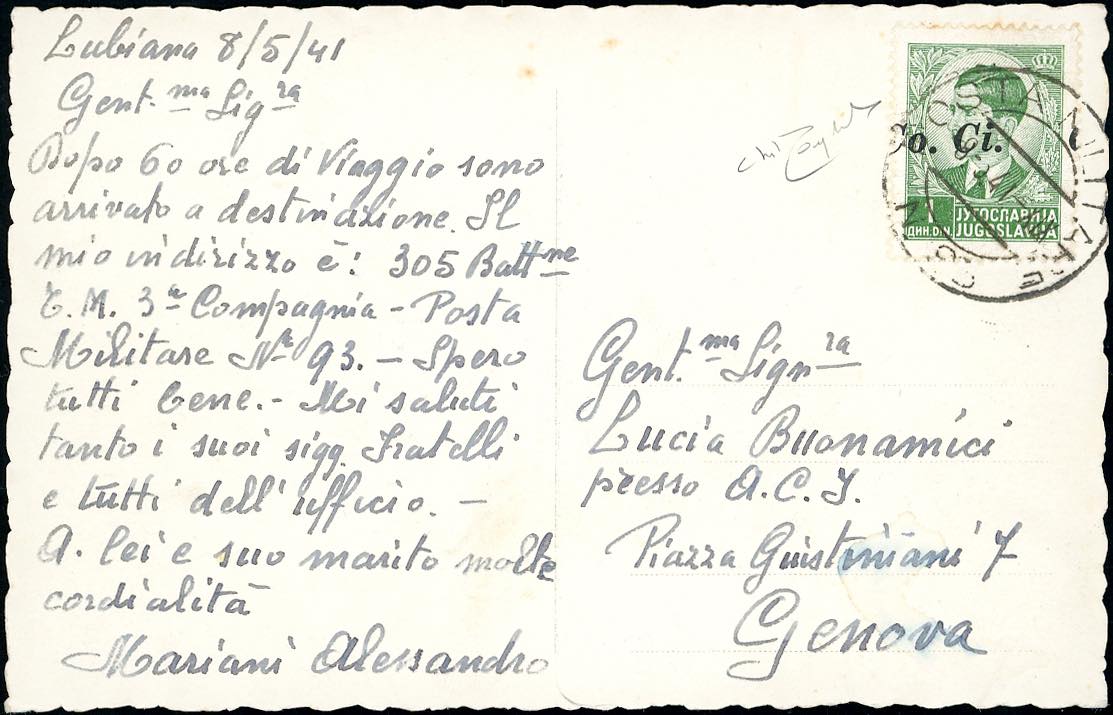 Lubiana 8/5/41
Gent.ma Sigra
Dopo 60 ore di Viaggio sono
arrivato a destinazione. Il
mio indirizzo è: 305 Battne
T.M. 3a Compagnia - Posta
Militare No 93. - Spero
tutti bene. - Mi saluti
tanto i suoi sigg. Fratelli
e tutti dell'ufficio. -
A lei e suo marito molte
cordialità
Mariani Alessandro
Co. Ci.
1
ЈУГОСЛАВИЈА
ДИН. DIN
JUGOSLAVIJA
POSTA MILITARE
Gent.ma Signra
Lucia Buonamici
presso A.C.I.
Piazza Giustiniani 7
Genova